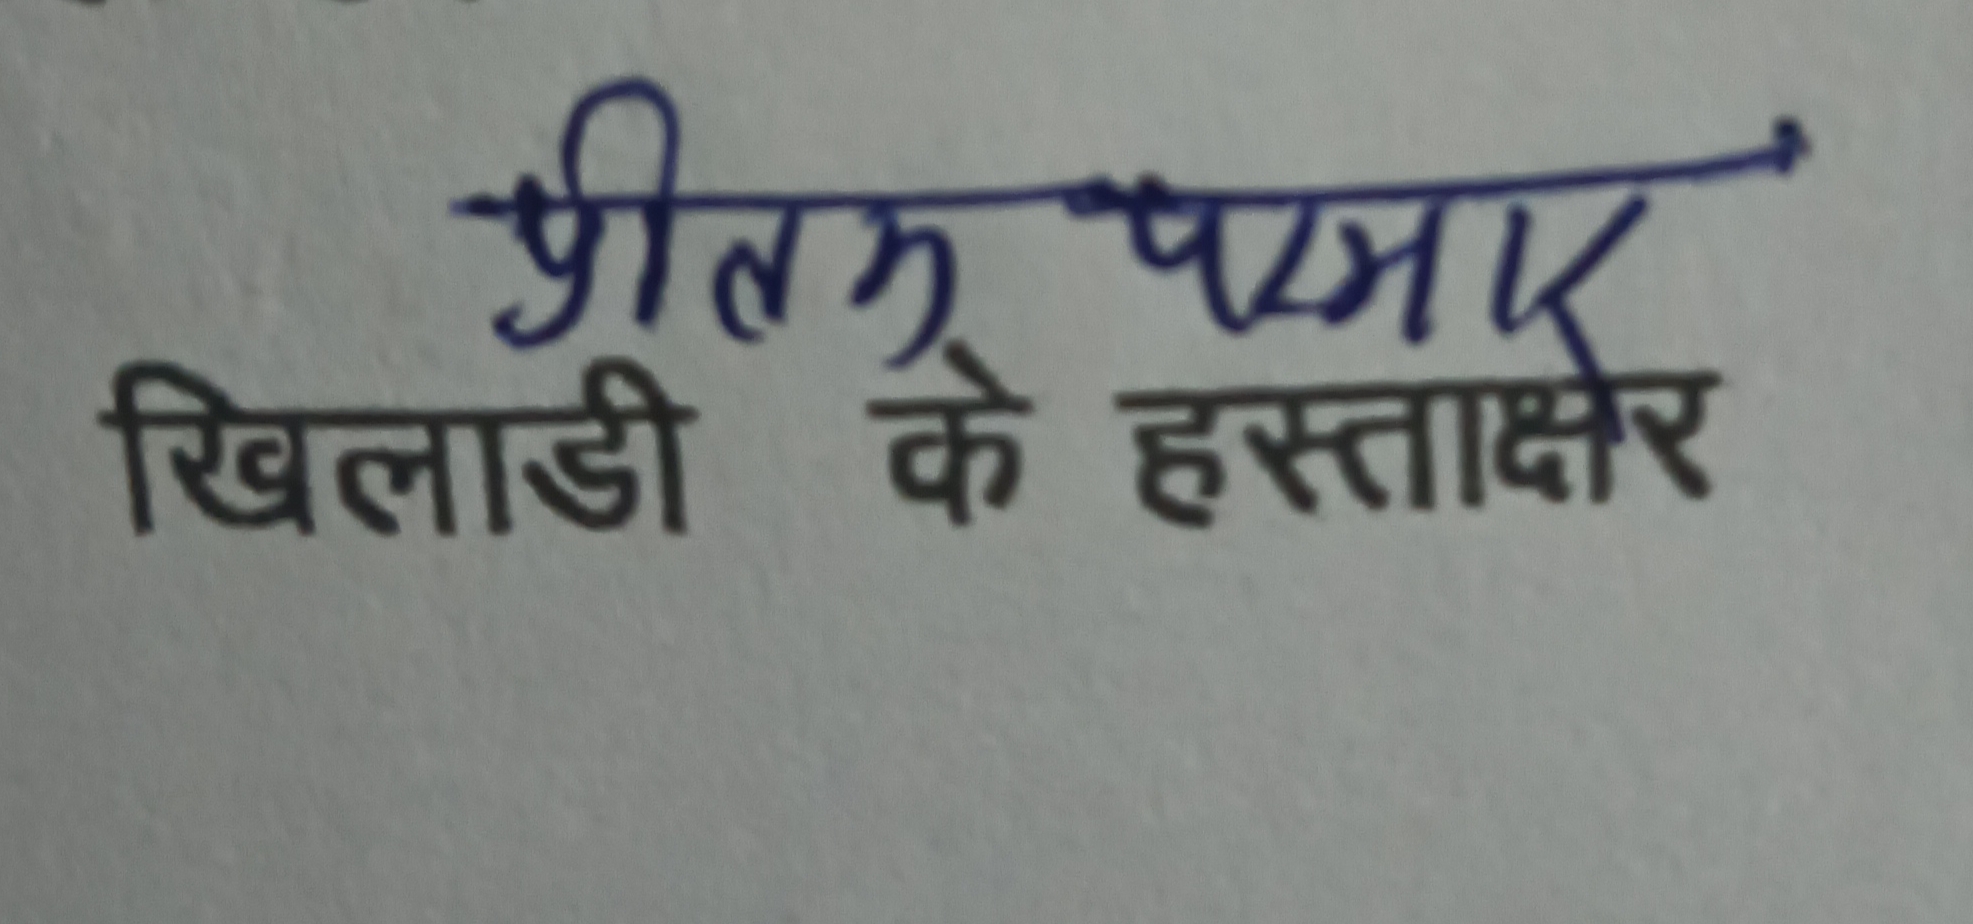 प्रीतम परमार
खिलाडी के हस्ताक्षर